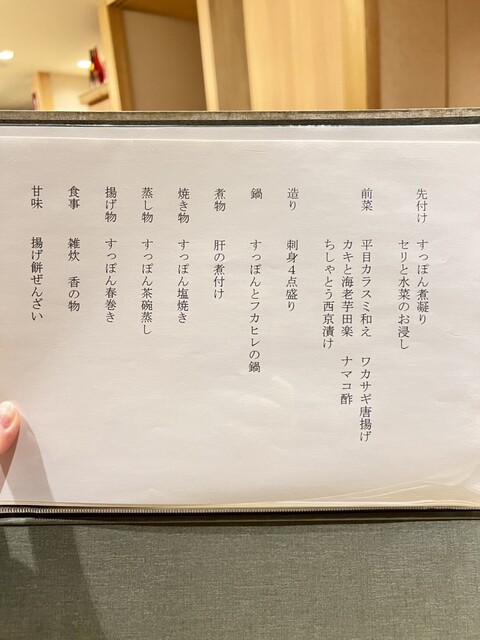 先付け　すっぽん煮凝り
セリと水菜のお浸し
前菜　平目カラスミ和え　ワカサギ唐揚げ
カキと海老芋田楽　ナマコ酢
ちしゃとう西京漬け
造り　刺身４点盛り
鍋　すっぽんとフカヒレの鍋
煮物　肝の煮付け
焼き物　すっぽん塩焼き
蒸し物　すっぽん茶碗蒸し
揚げ物　すっぽん春巻き
食事　雑炊　香の物
甘味　揚げ餅ぜんざい